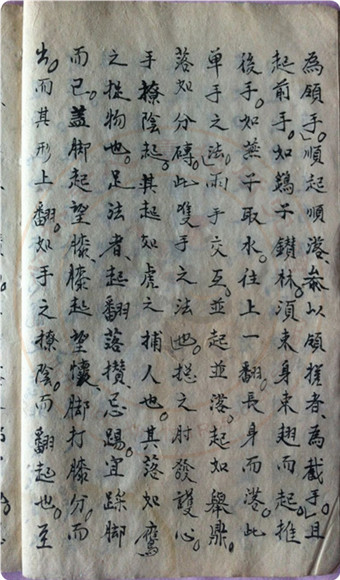 為領手。順起順落、參以領搓者、為截手。且
起前手。如鷂子鑽林。須束身束翅而起。推
後手。如燕子取水。往上一翻。長身而落。此
单手之法。兩手交互並起並落。起如舉鼎。
落如分磚。此雙手之法也。總之肘發護心。
手撩陰起。其起如虎之捕人也。其落如鷹
之捉物也。足法者、起翻落攢。忌踢。宜踩脚
而已。蓋脚起望膝。膝起望懷。脚打膝分。而
出。而其形上翻。如手之撩陰。而翻起也。至